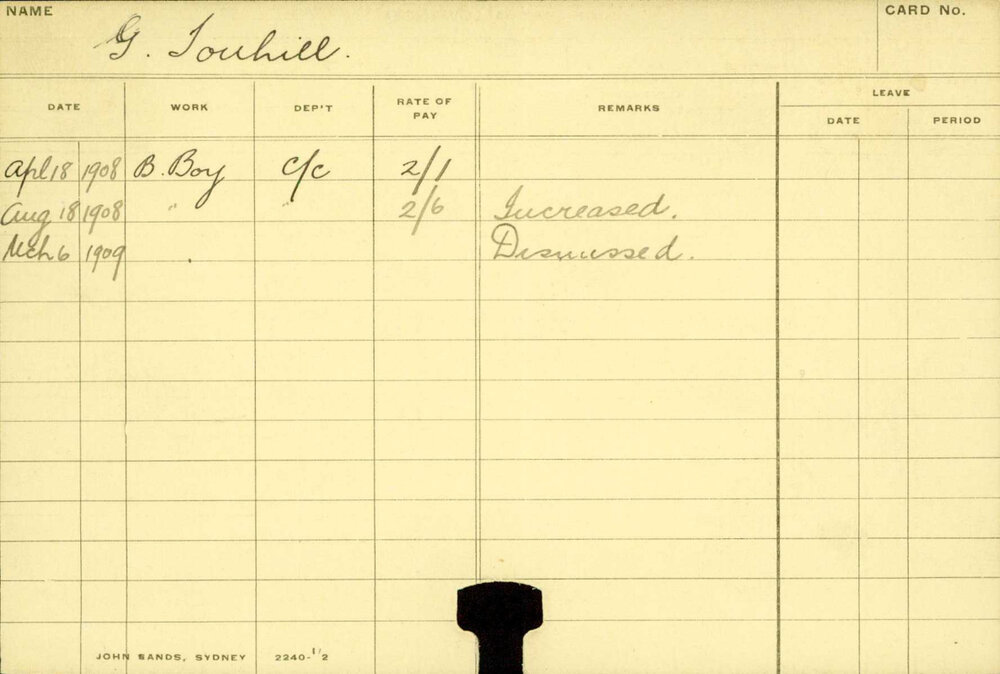 NAME
CARD No.
G. Touhill.
DATE WORK DEP'T RATE OF PAY REMARKS LEAVE
DATE PERIOD
Apl 18 1908 B. Boy C/C 2/1
Aug 18 1908 " " 2/6 Increased.
Mch 6 1909 Dismissed.
JOHN SANDS, SYDNEY 2240-1/2